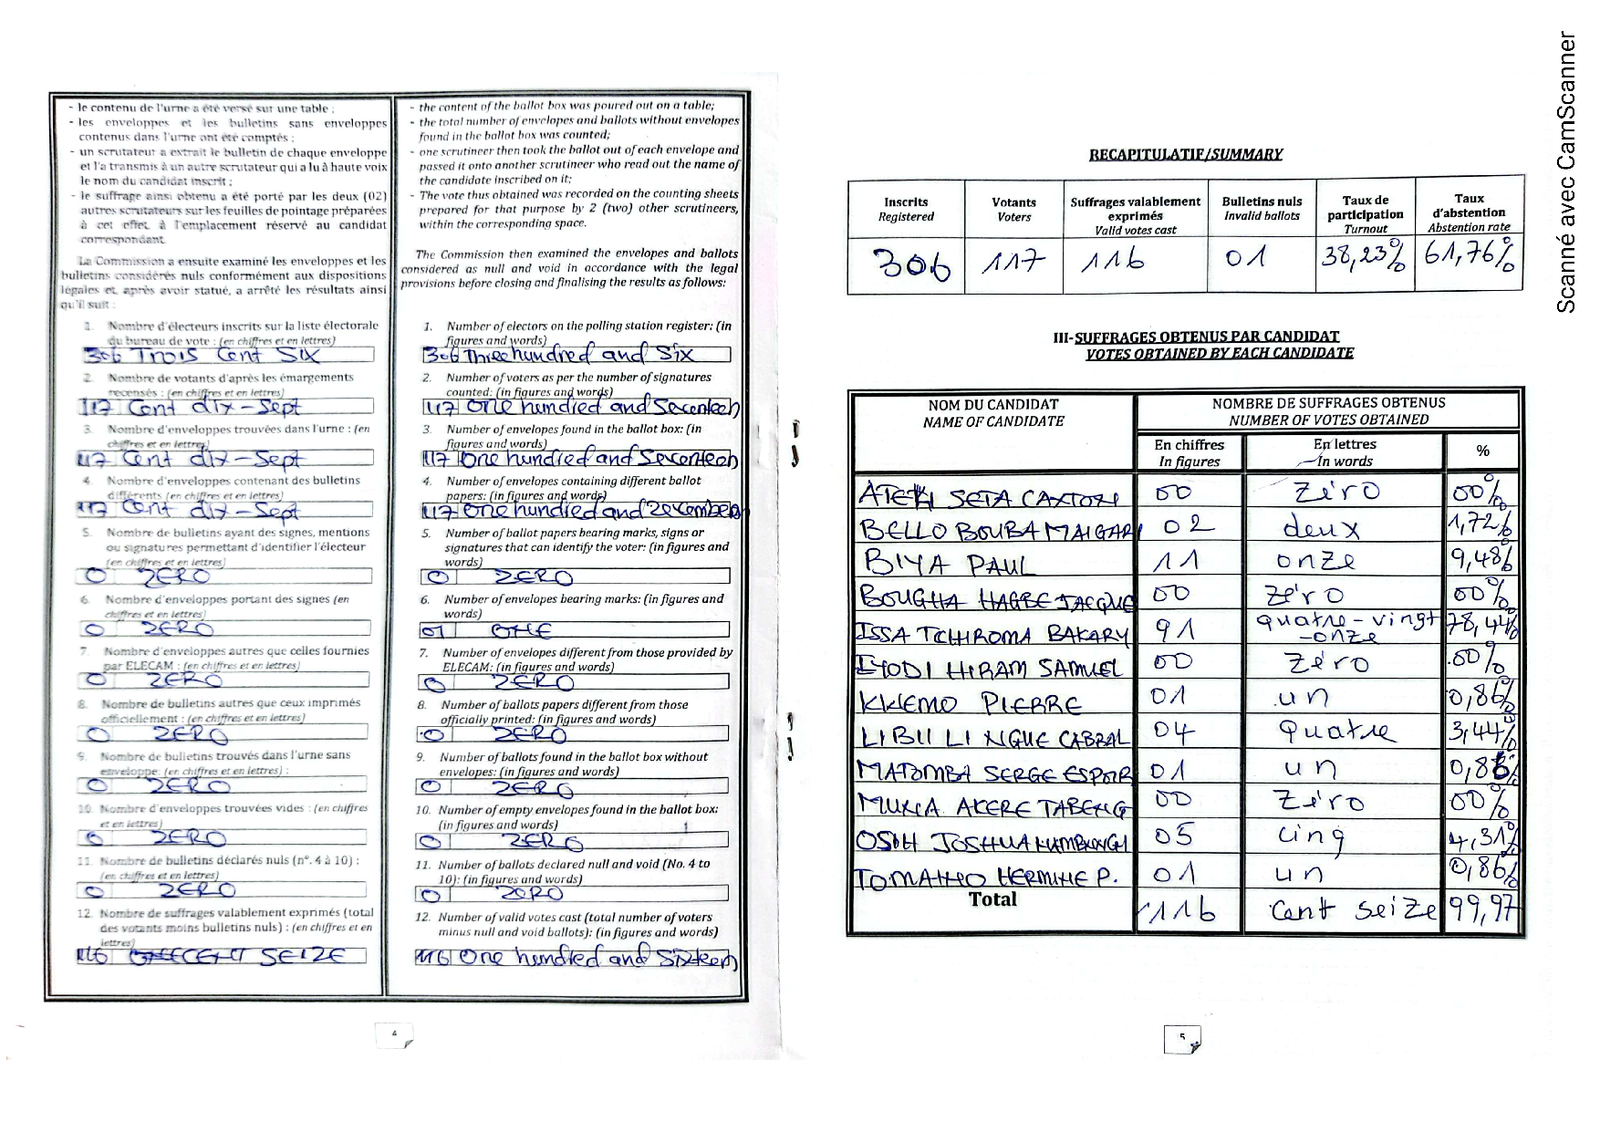 - le contenu de l'urne a été versé sur une table ;
- les enveloppes et les bulletins sans enveloppes
contenus dans l'urne ont été comptés ;
- un scrutateur a extrait le bulletin de chaque enveloppe
et l'a transmis à un autre scrutateur qui a lu à haute voix
le nom du candidat inscrit ;
- le suffrage ainsi obtenu a été porté par les deux (02)
autres scrutateurs sur les feuilles de pointage préparées
à cet effet à l'emplacement réservé au candidat
correspondant.
La Commission a ensuite examiné les enveloppes et les
bulletins considérés nuls conformément aux dispositions
légales et, après avoir statué, a arrêté les résultats ainsi
qu'il suit :
1. Nombre d'électeurs inscrits sur la liste électorale
du bureau de vote : (en chiffres et en lettres)
306 Trois Cent Six
2. Nombre de votants d'après les émargements
recensés : (en chiffres et en lettres)
117 Cent dix-Sept
3. Nombre d'enveloppes trouvées dans l'urne : (en
chiffres et en lettres)
117 Cent dix-Sept
4. Nombre d'enveloppes contenant des bulletins
différents (en chiffres et en lettres)
117 Cent dix-Sept
5. Nombre de bulletins ayant des signes, mentions
ou signatures permettant d'identifier l'électeur
(en chiffres et en lettres)
0 ZERO
6. Nombre d'enveloppes portant des signes (en
chiffres et en lettres)
0 ZERO
7. Nombre d'enveloppes autres que celles fournies
par ELECAM : (en chiffres et en lettres)
0 ZERO
8. Nombre de bulletins autres que ceux imprimés
officiellement : (en chiffres et en lettres)
0 ZERO
9. Nombre de bulletins trouvés dans l'urne sans
enveloppe: (en chiffres et en lettres) :
0 ZERO
10. Nombre d'enveloppes trouvées vides : (en chiffres
et en lettres)
0 ZERO
11. Nombre de bulletins déclarés nuls (n°. 4 à 10) :
(en chiffres et en lettres)
0 ZERO
12. Nombre de suffrages valablement exprimés (total
des votants moins bulletins nuls) : (en chiffres et en
lettres)
116 CENT SEIZE
- the content of the ballot box was poured out on a table;
- the total number of envelopes and ballots without envelopes
found in the ballot box was counted;
- one scrutineer then took the ballot out of each envelope and
passed it onto another scrutineer who read out the name of
the candidate inscribed on it;
- The vote thus obtained was recorded on the counting sheets
prepared for that purpose by 2 (two) other scrutineers,
within the corresponding space.
The Commission then examined the envelopes and ballots
considered as null and void in accordance with the legal
provisions before closing and finalising the results as follows:
1. Number of electors on the polling station register: (in
figures and words)
306 Three hundred and Six
2. Number of voters as per the number of signatures
counted: (in figures and words)
117 One hundred and Seventeeh
3. Number of envelopes found in the ballot box: (in
figures and words)
117 One hundred and Seventeeh
4. Number of envelopes containing different ballot
papers: (in figures and words)
117 One hundred and
5. Number of ballot papers bearing marks, signs or
signatures that can identify the voter: (in figures and
words)
0 ZERO
6. Number of envelopes bearing marks: (in figures and
words)
01 ONE
7. Number of envelopes different from those provided by
ELECAM: (in figures and words)
0 ZERO
8. Number of ballots papers different from those
officially printed: (in figures and words)
0 ZERO
9. Number of ballots found in the ballot box without
envelopes: (in figures and words)
0 ZERO
10. Number of empty envelopes found in the ballot box:
(in figures and words)
0 ZERO
11. Number of ballots declared null and void (No. 4 to
10): (in figures and words)
0 ZERO
12. Number of valid votes cast (total number of voters
minus null and void ballots): (in figures and words)
116 One hundred and Sixteen
4
RECAPITULATIF/SUMMARY
Inscrits Registered | Votants Voters | Suffrages valablement exprimés Valid votes cast | Bulletins nuls Invalid ballots | Taux de participation Turnout | Taux d'abstention Abstention rate
306 117 116 01 38,23% 61,76%
III-SUFFRAGES OBTENUS PAR CANDIDAT
VOTES OBTAINED BY EACH CANDIDATE
NOM DU CANDIDAT NOMBRE DE SUFFRAGES OBTENUS
NAME OF CANDIDATE NUMBER OF VOTES OBTAINED
En chiffres En lettres %
In figures In words
ATEKI SETA CAXTON 00 Zéro 00%
BELLO BOUBA MAIGARI 02 deux 1,72%
BIYA PAUL 11 onze 9,48%
BOUGHA HAGBE JACQUE 00 Zéro 00%
ISSA TCHIROMA BAKARY 91 quatre-vingt-onze 78,44%
IYODI HIRAM SAMUEL 00 Zéro 00%
KWEMO PIERRE 01 un 0,86%
LIBII LI NGUE CABRAL 04 quatre 3,44%
MATOMBA SERGE ESPOIR 01 un 0,86%
MUNA AKERE TABENG 00 Zéro 00%
OSIH JOSHUA NAMBANGI 05 cinq 4,31%
TOMAINO HERMINE P. 01 un 0,86%
Total 116 cent seize 99,97
5
Scanné avec CamScanner